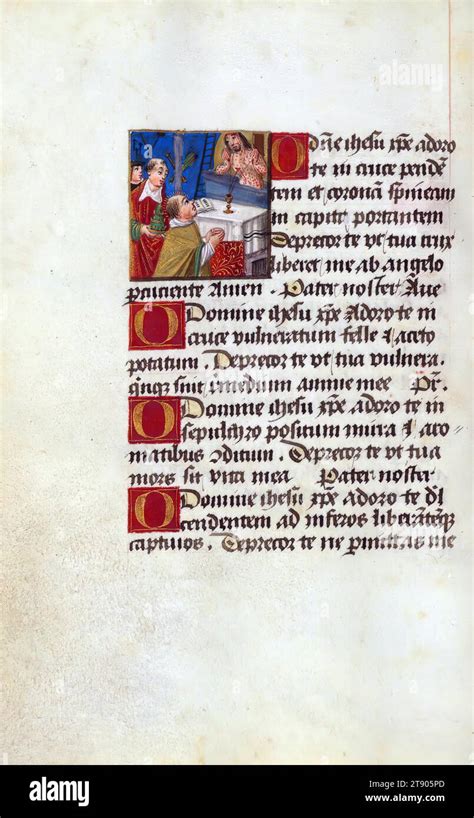 alamy
O Dñe ihesu xp̄e adoro
te in cruce pendē
tem et coronā spineam
in capite portantem
Deprecor te vt tua crux
liberet me ab angelo
percuciente Amen. Pater noster Aue
O Domine ihesu xp̄e Adoro te in
cruce vulneratum felle & aceto
potatum. Deprecor te vt tua vulnera.
sint remedium anime mee Pr̄.
O Domine ihesu xp̄e adoro te in
sepulchro positum mirra & aro
matibus conditum. Deprecor te vt tua
mors sit vita mea Pater noster
O Domine ihesu xp̄e adoro te di
cendentem ad inferos liberantēque
captiuos. Deprecor te ne permittas me
alamy
Image ID: 2T905PD
www.alamy.com